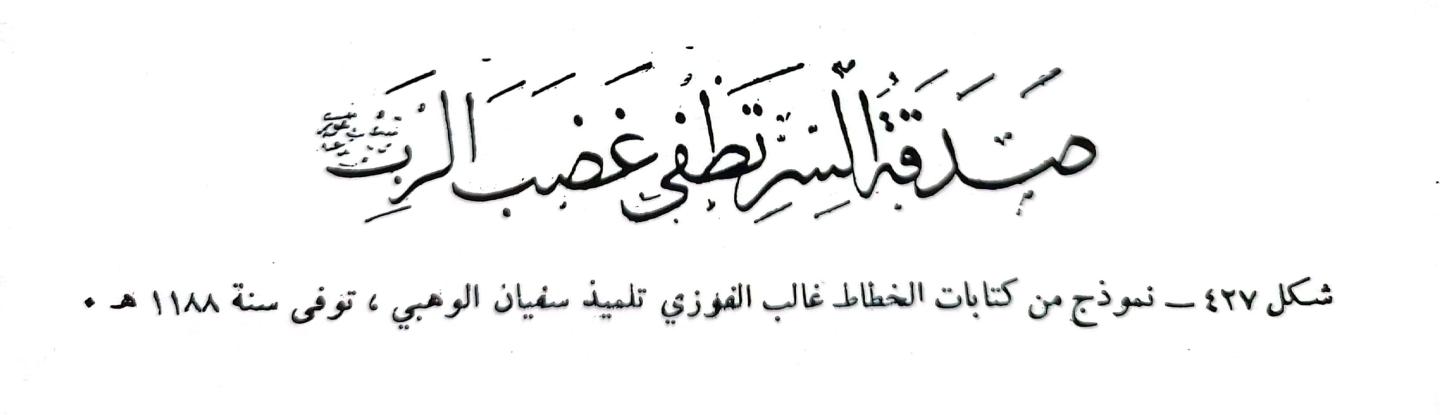 صَدَقَةُ السِّرِّ تُطْفِئُ غَضَبَ الرَّبِّ
شكل ٤٢٧ — نموذج من كتابات الخطاط غالب الفوزي تلميذ سفيان الوهبي ، توفى سنة ١١٨٨ هـ .